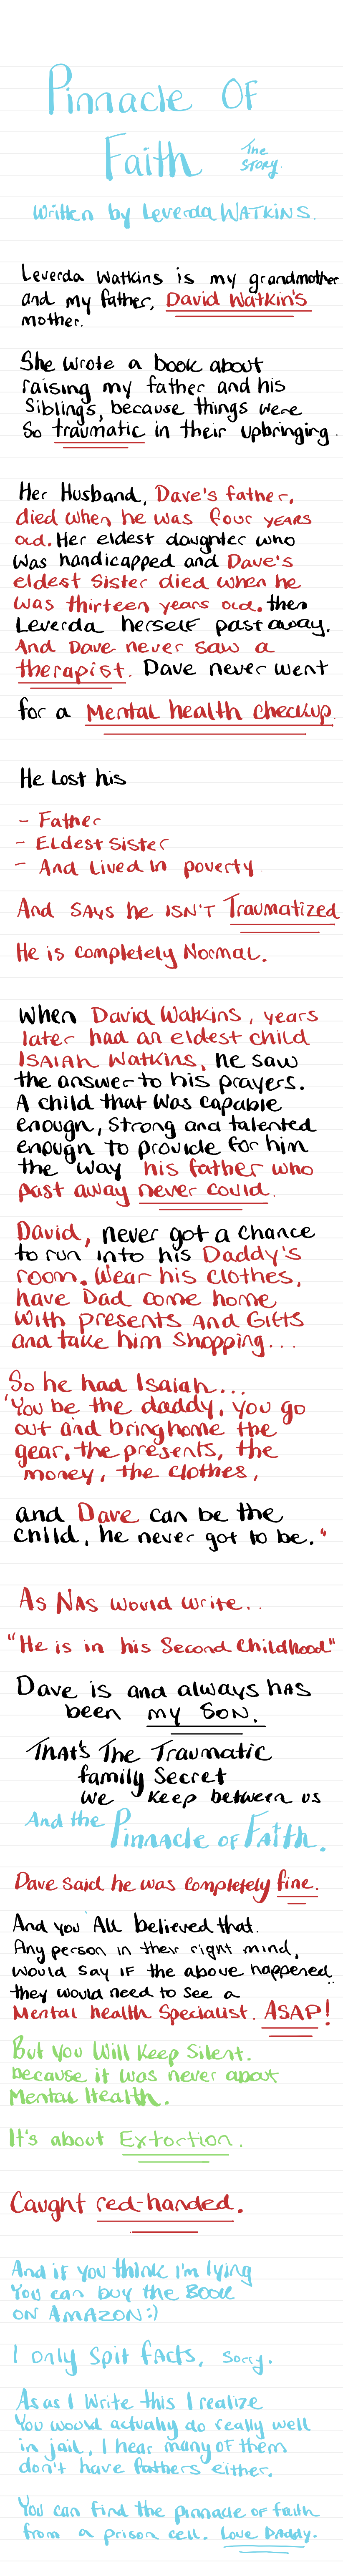 Pinnacle OF
Faith The
STORY.
Written by Leverda WATKINS.
Leverda Watkins is my grandmother
and my father, David Watkin's
mother.
She wrote a book about
raising my father and his
Siblings, because things were
So traumatic in their upbringing.
Her Husband, Dave's father,
died when he was four years
old. Her eldest daughter who
was handicapped and Dave's
eldest Sister died when he
was thirteen years old. then
Leverda herself past away.
And Dave never saw a
therapist. Dave never went
for a Mental health checkup.
He Lost his
- Father
- Eldest Sister
- And Lived In poverty.
And SAYS he ISN'T Traumatized
He is completely Normal.
When David Watkins, years
later had an eldest child
ISAIAH Watkins, he saw
the answer to his prayers.
A child that was capable
enough, Strong and talented
enough to provide for him
the way his father who
past away never could.
David, never got a chance
to run into his Daddy's
room. Wear his clothes,
have Dad come home
With presents And Gifts
and take him Shopping...
So he had Isaiah...
"You be the daddy, you go
out and bring home the
gear, the presents, the
money, the clothes,
and Dave can be the
child, he never got to be."
As NAS would write..
"He is in his Second Childhood"
Dave is and always HAS
been my SON.
THAT'S The Traumatic
family Secret
we Keep between us
And the Pinnacle OF Faith.
Dave said he was completely fine.
And you All believed that.
Any person in their right mind,
would say IF the above happened..
they would need to see a
Mental health Specialist. ASAP!
But You Will Keep Silent.
because it was never about
Mental Health.
It's about Extortion.
Caught red-handed.
And if you think I'm lying
You can buy the BOOK
ON AMAZON:)
I only Spit facts, Sorry.
As as I Write this I realize
You would actually do really well
in jail, I hear many OF them
don't have fathers either.
You can find the pinnacle OF faith
from a prison cell. Love DADDY.